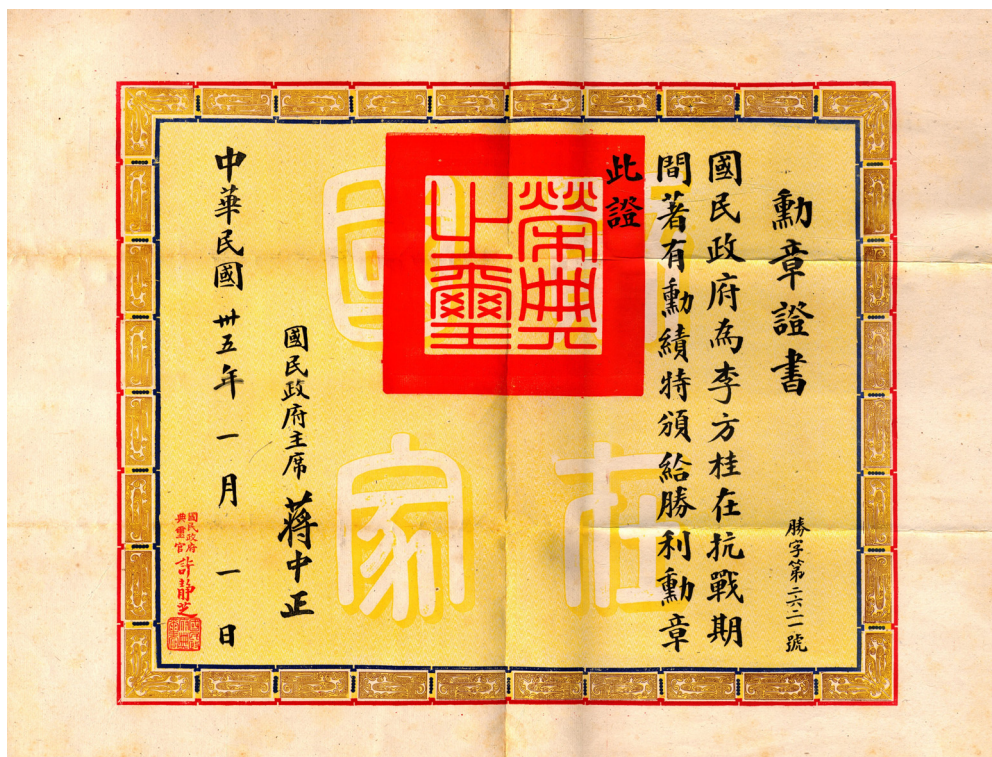 勳章證書
勝字第二六二一號
國民政府為李方桂在抗戰期
間著有勳績特頒給勝利勳章
此證
榮典之璽
國民政府主席 蔣中正
中華民國卅五年一月一日
國民政府
典璽官 許靜芝
在
國家